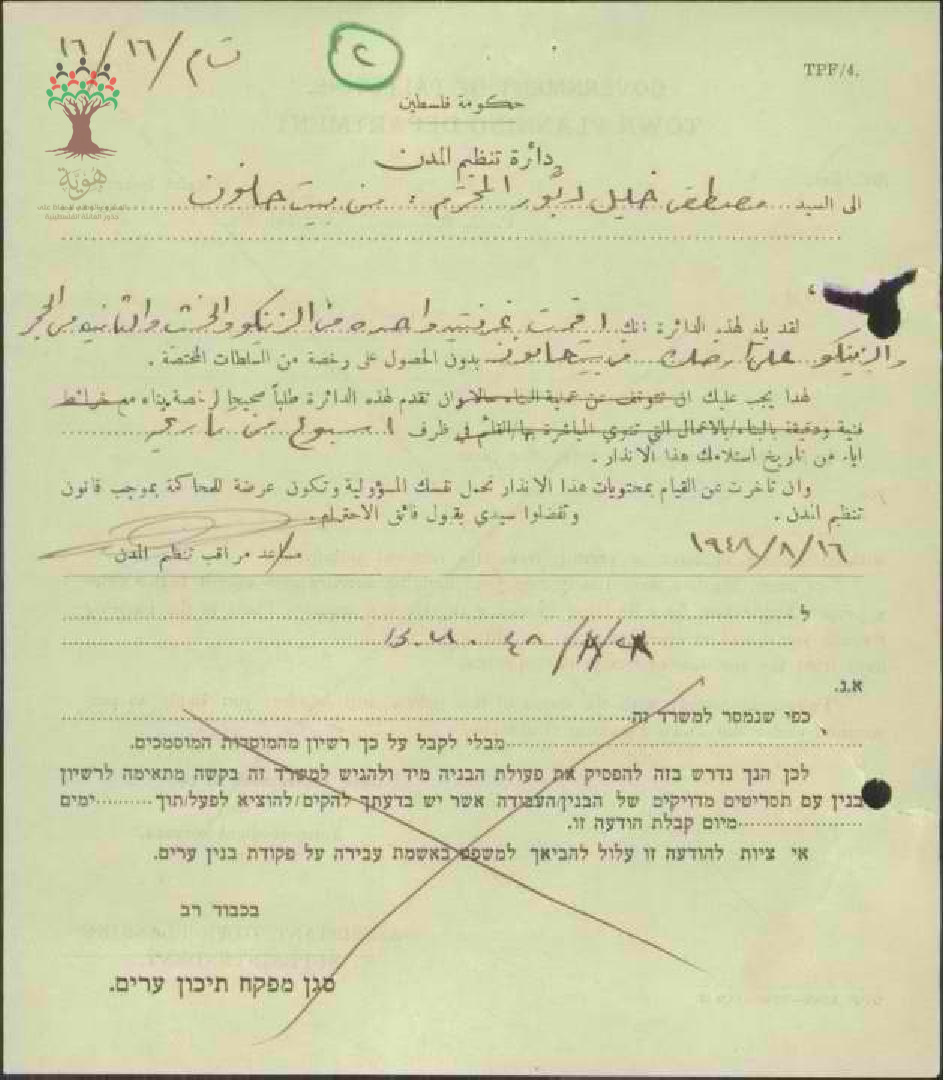 ت م / ١٦ / ١٦
٢
TPF/4.
هوية
حكومة فلسطين
دائرة تنظيم المدن
الى السيد مصطفى خليل المحترم من بيت حانون
لقد بلغ لهذه الدائرة انك اقمت غرفتين واحده من الزنكو والخشب والثانيه من الحجر
والزينكو على ارضك بدون الحصول على رخصة من السلطات المختصة .
لهذا يجب عليك ان تتوقف عن عملية البناء حالا وان تقدم لهذه الدائرة طلباً صحيحا لرخصة بناء مع خرائط
فنية ودقيقة بالبناء/بالاعمال التي تنوي المباشرة بها/القائم في ظرف اسبوع من تاريخ
اياء من تاريخ استلامك هذا الانذار .
وان تاخرت عن القيام بمحتويات هذا الانذار تحمل نفسك المسؤولية وتكون عرضة للمحاكمة بموجب قانون
تنظيم المدن . وتفضلوا سيدي بقبول فائق الاحترام .
١٩٤٨/٨/١٦ مساعد مراقب تنظيم المدن
ל
א.נ.
כפי שנמסר למשרד זה
מבלי לקבל על כך רשיון מהמוסדות המוסמכים.
לכן הנך נדרש בזה להפסיק את פעולת הבניה מיד ולהגיש למשרד זה בקשה מתאימה לרשיון
בנין עם תסריטים מדויקים של הבנין/העבודה אשר יש בדעתך להקים/להוציא לפעל/תוך ימים
מיום קבלת הודעה זו.
אי ציות להודעה זו עלול להביאך למשפט באשמת עבירה על פקודת בנין ערים.
בכבוד רב
סגן מפקח תיכון ערים.